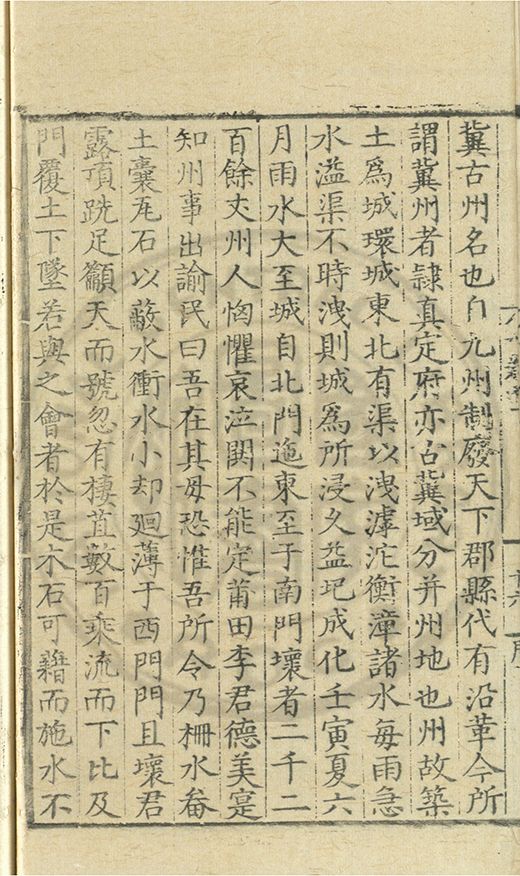 冀古州名也自九州制廢天下郡縣代有沿革今所
謂冀州者隷真定府亦古冀域分并州地也州故築
土爲城環城東北有渠以洩滹沱衡漳諸水每雨急
水溢渠不時洩則城爲所浸久益圮成化壬寅夏六
月雨水大至城自北門迤東至于南門壞者二千二
百餘丈州人恟懼哀泣閧不能定莆田李君德美寔
知州事出諭民曰吾在其毋恐惟吾所令乃柵水畚
土囊瓦石以蔽水衝水小却廻薄于西門門且壞君
露頂跣足籲天而號忽有棲苴數百乘流而下比及
門覆土下墜若與之會者於是木石可藉而施水不